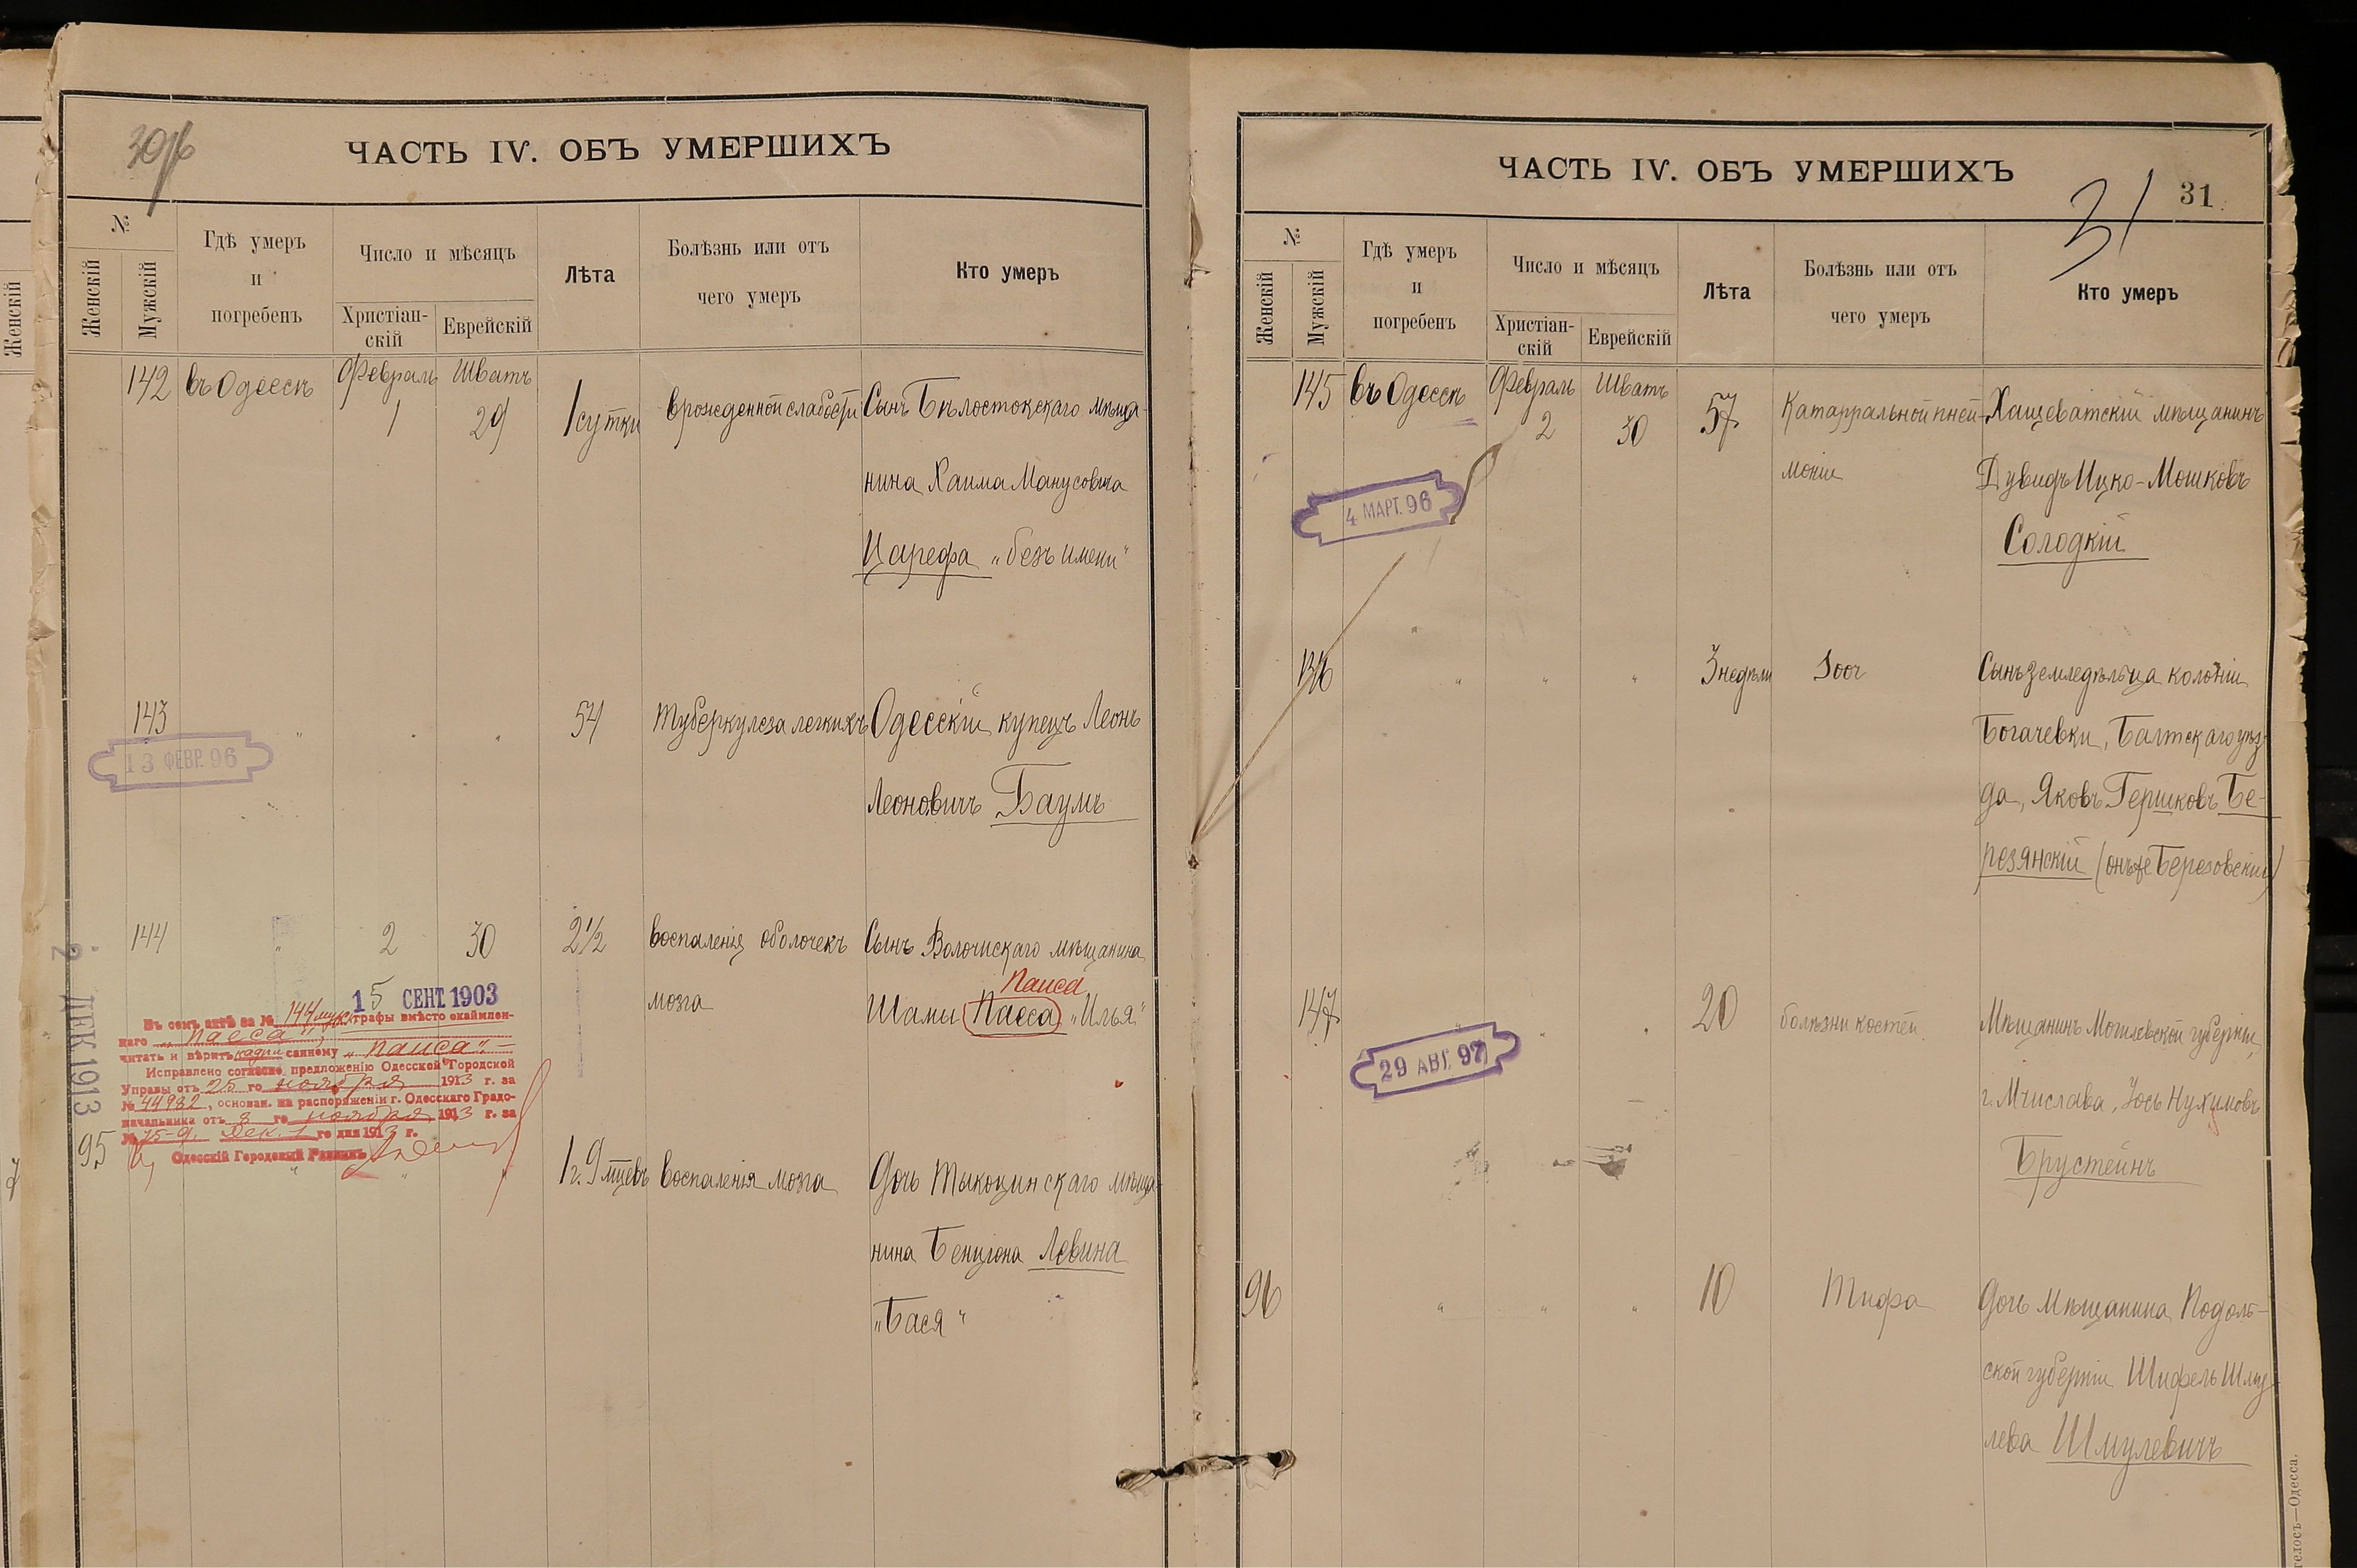 30об
ЧАСТЬ IV. ОБЪ УМЕРШИХЪ
№
Женскій
Мужскій
Гдѣ умеръ
и
погребенъ
Число и мѣсяцъ
Христіан-
скій
Еврейскій
Лѣта
Болѣзнь или отъ
чего умеръ
Кто умеръ
142 въ Одессѣ Февраль Шватъ
1 29 1 сутки врожденной слабости Сынъ Бѣлостокскаго мѣща-
нина Хаима Манусовича
Царефа „безъ имени“
143 „ „ „ 54 туберкулеза легкихъ Одесскій купецъ Леонъ
13 ФЕВР. 96
Леоновичъ Баумъ
144 „ 2 30 2½ воспаленія оболочекъ Сынъ Волочискаго мѣщанина
Паиса
мозга Шами Пасса „Илья“
15 СЕНТ. 1903
2 ДЕК 1913
Въ семъ актѣ за № 144 муж. графы вмѣсто окаймлен-
наго „Пасса“,
читать и вѣрить надписанному „Паиса“.
Исправлено согласно предложенію Одесской Городской
Управы отъ 25 го ноября 1913 г. за
№ 44982, основан. на распоряженіи г. Одесскаго Градо-
начальника отъ 8 го ноября 1913 г. за
№ 75-9. Дек. 1 го дня 1913 г.
Одесскій Городовый Раввинъ
95 „ „ „ 1 г. 9 мцевъ воспаленія мозга Дочь Тыкоцинскаго мѣща-
нина Бенціона Левина
„Бася“
ЧАСТЬ IV. ОБЪ УМЕРШИХЪ
31
31
№
Женскій
Мужскій
Гдѣ умеръ
и
погребенъ
Число и мѣсяцъ
Христіан-
скій
Еврейскій
Лѣта
Болѣзнь или отъ
чего умеръ
Кто умеръ
145 въ Одессѣ Февраль Шватъ
2 30 57 Катарральной пней- Хащеватскій мѣщанинъ
моніи Дувидъ Ицко-Мошковъ
4 МАРТ. 96
Солодкій
146 „ „ „ 3 недѣли Soor Сынъ земледѣльца колоніи
Богачевки, Балтскаго уѣз-
да, Яковъ Гершковъ Бе-
резянскій (онъ же Березовскій)
147 „ „ „ 20 болѣзни костей Мѣщанинъ Могилевской губерніи,
29 АВГ. 97
г. Мчислава, Іось Нухимовъ
Брустейнъ
96 „ „ „ 10 Тифа Дочь мѣщанина Подоль-
ской губерніи Шифель Шму-
лева Шмулевичъ
Женскій